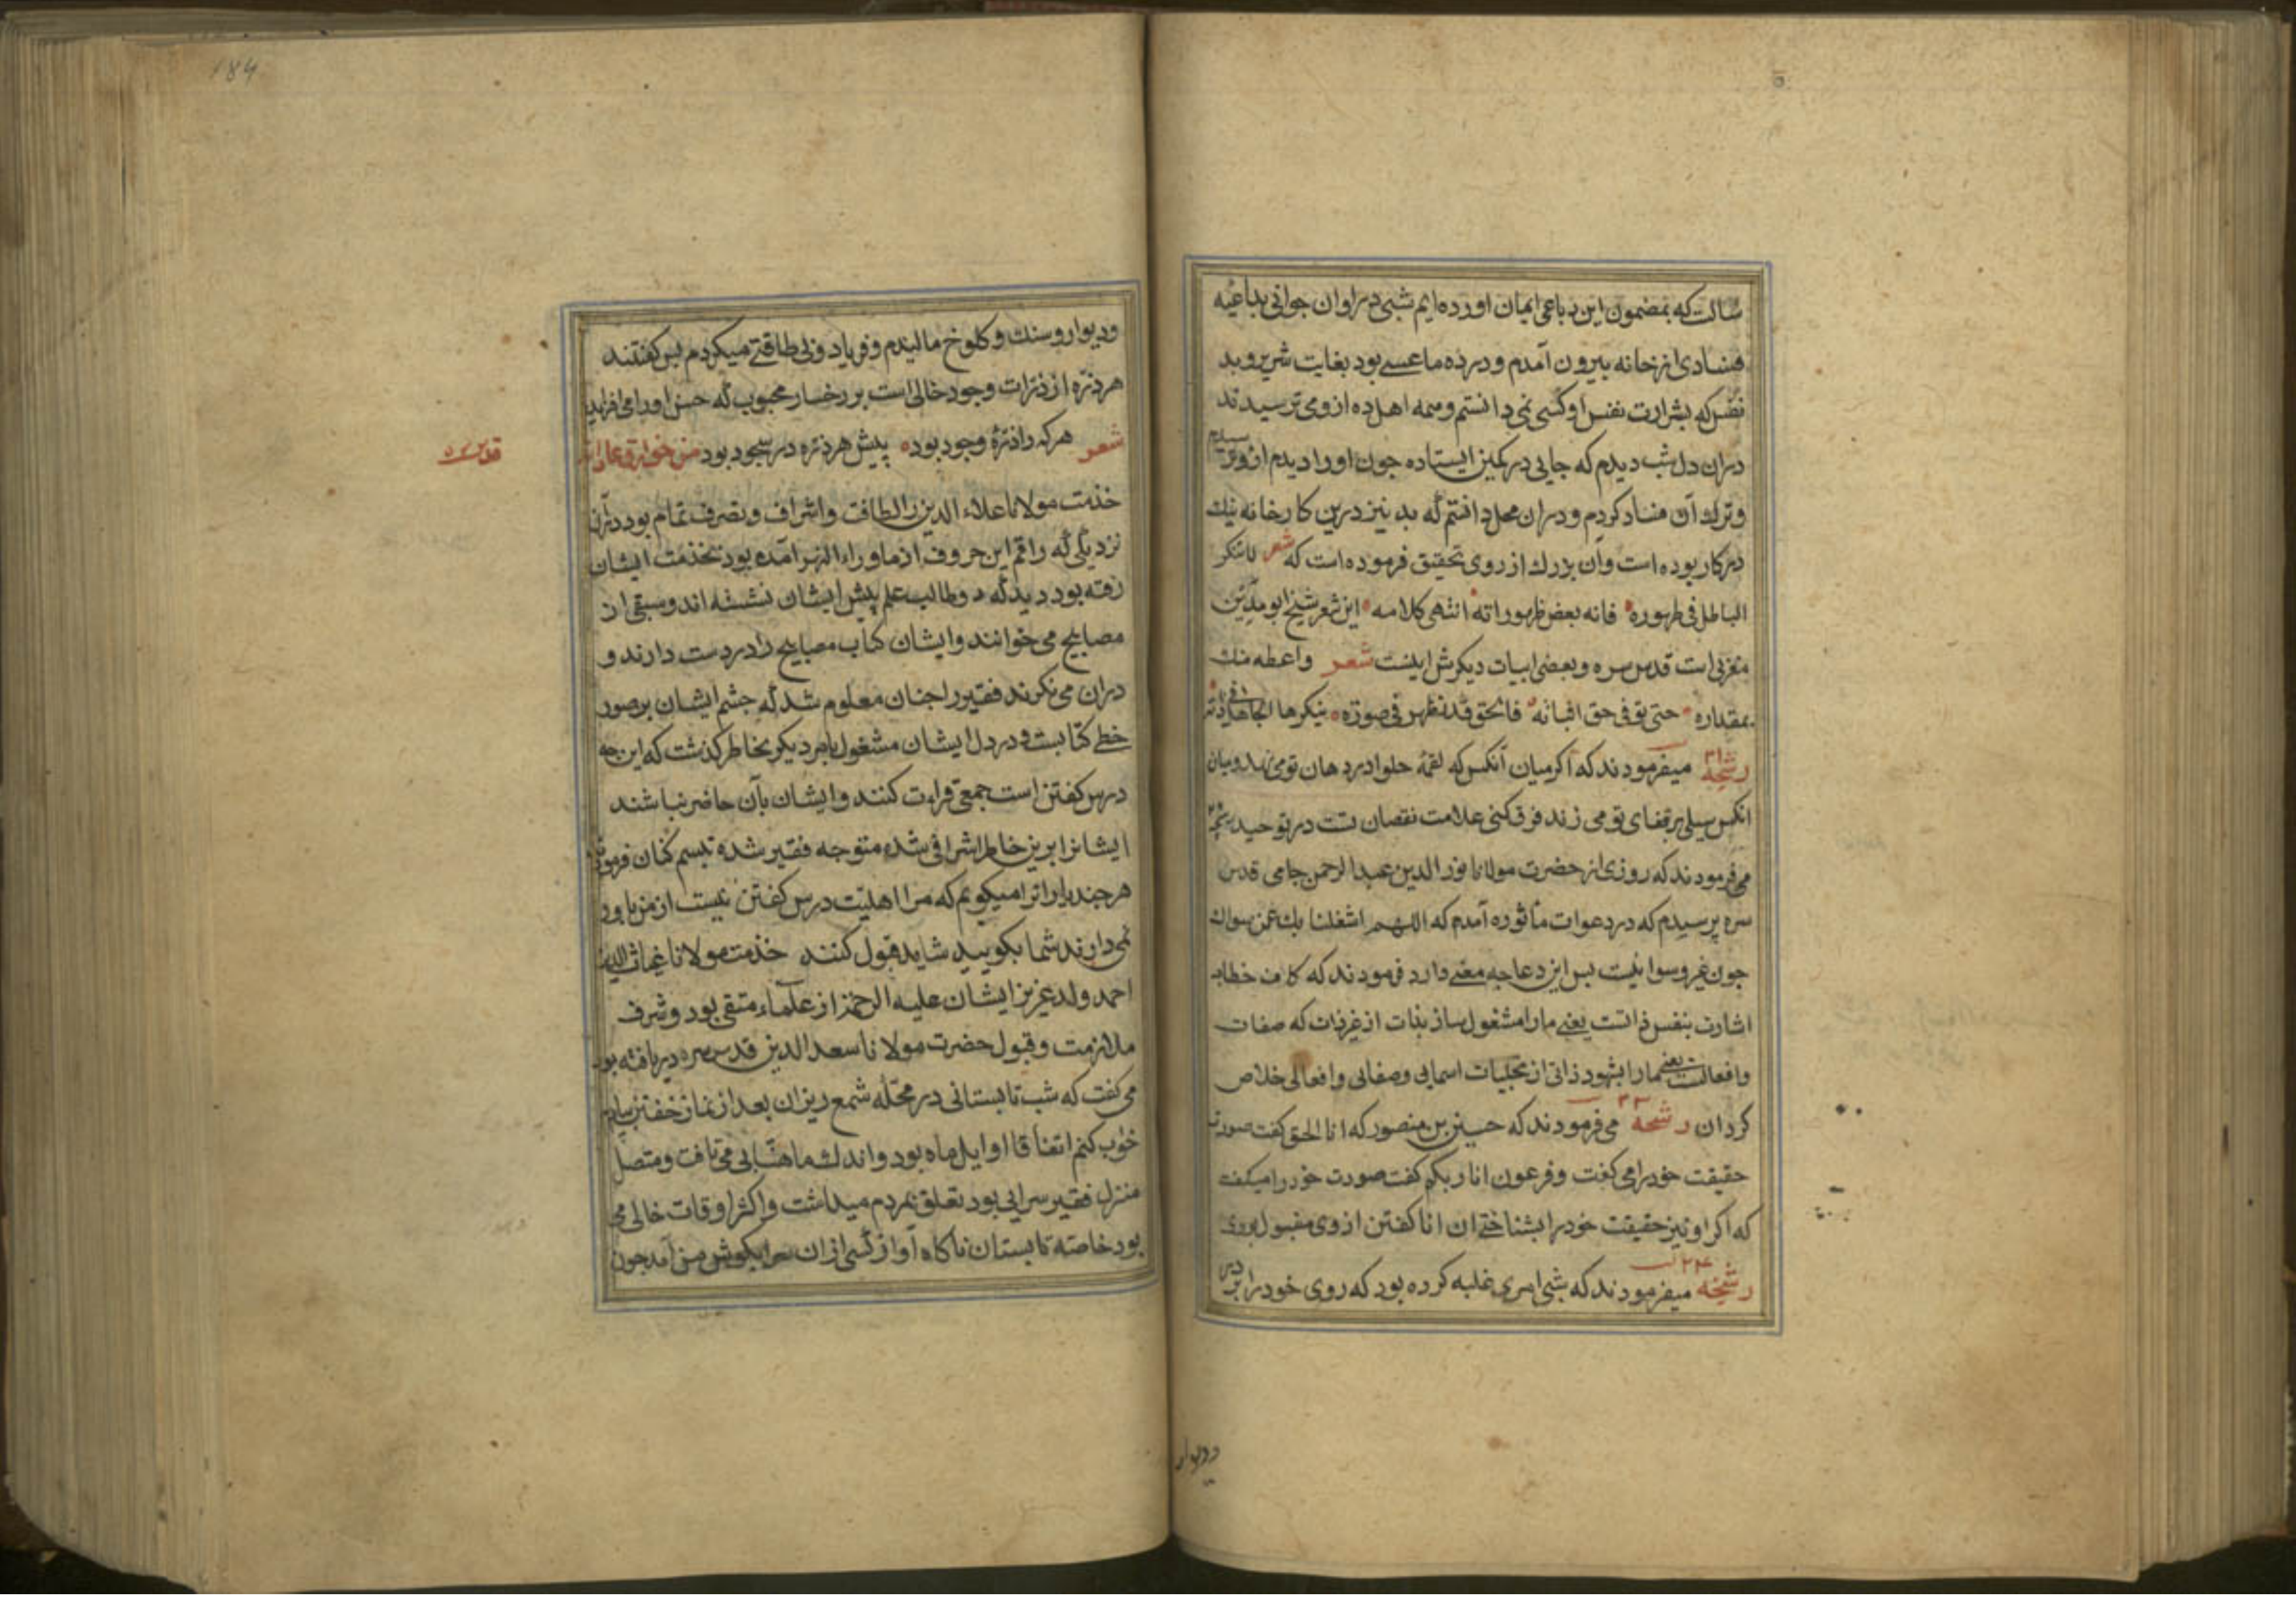 سالست که بمضمون این رباعی ایمان اورده ایم شبی در اوان جوانی بداعیه
فسادی از خانه بیرون آمدم و در ده ما عسسی بود بغایت شریر و بد
نفس که بشرارت نفس او کسی نمی دانستم و همه اهل ده ازو می ترسیدند
دران دل شب دیدم که جایی در کمین ایستاده جون او را دیدم ازو ترسیدم
و ترك آن فساد کردم و دران محل دانستم که بد نیز درین کارخانه نیك
در کار بوده است و آن بزرك از روی تحقیق فرموده است که شعر لا تنکر
الباطل فی طهوره فانه بعض ظهوراته انتهی کلامه این شعر شیخ ابو مدین
مغربی است قدس سره و بعضی ابیات دیکرش اینست شعر واعطه منك
بمقداره حتی توفی حق اثباته فالحق قد نظهر فی صورة ینکرها الجاهل فی ذاته
رشحه ٣١ میفرمودند که اکر میان آنکس که لقمه حلوا در دهان تو می نهد و میان
انکس سیلی بر قفای تو می زند فرق کنی علامت نقصان تست در توحید رشحه
می فرمودند که روزی از حضرت مولانا نور الدین عبد الرحمن جامی قدس
سره پرسیدم که در دعوات مأثوره آمدم که اللهم اشغلنا بك عمن سواك
جون غیر و سوا نیست پس این دعا جه معنی دارد فرمودند که کاف خطاب
اشارت بنفس ذاتست یعنی ما را مشغول ساز بذات از غیر ذات که صفات
و افعالست یعنی ما را بشهود ذاتی از تجلیات اسمایی و صفاتی و افعالی خلاص
کردان رشحه ٣٣ می فرمودند که حسین بن منصور که انا الحق کفت صورت
حقیقت خود را می کفت و فرعون انا ربکم کفت صورت خود را میکفت
که اکر او نیز حقیقت خود را بشناختی ان انا کفتن از وی مقبول بودی
رشحه ٣٤ میفرمودند که شبی امری غلبه کرده بود که روی خود را بر در
ودیوار
184
و دیوار و سنك و کلوخ مالیدم و فریاد و بی طاقتی میکردم پس کفتند
هر ذره از ذرات وجود خالی است بر رخسار محبوب که حسن او را می افزاید
شعر هر که را ذرهٔ وجود بود پیش هر ذره در سجود بود من خوارق عاداته
قدس سره
خذمت مولانا علاء الدین را لطافت و اشراف و تصرف تمام بود دران
نزدیکی که راقم این حروف از ماوراء النهر آمده بود بخذمت ایشان
رفته بود دید که دو طالب علم پیش ایشان نشسته اند و سبقی از
مصابیح می خوانند و ایشان کتاب مصابیح را در دست دارند و
دران می نکرند فقیر را جنان معلوم شد که جشم ایشان بر صور
خطی کتابست و در دل ایشان مشغول بامر دیکر بخاطر کذشت که این جه
درس کفتن است جمعی قراءت کنند و ایشان بآن حاضر نباشند
ایشانرا برین خاطر اشرافی شده متوجه فقیر شده تبسم کنان فرمودند
هر جند یارانرا میکویم که مرا اهلیت درس کفتن نیست از من باور
نمی دارند شما بکویید شاید قبول کنند خذمت مولانا غیاث الدین
احمد ولد عزیز ایشان علیه الرحمه از علماء متقی بود و شرف
ملازمت و قبول حضرت مولانا سعد الدین قدس سره دریافته بود
می کفت که شب تابستانی در محله شمع ریزان بعد از نماز خفتن بیام
خواب کنم اتفاقا اوایل ماه بود و اندك ماهتابی می تافت و متصل
منزل فقیر سرایی بود تعلق بمردم میداشت و اکثر اوقات خالی می
بود خاصه تابستان ناکاه آواز کسی ازان سرا بکوش من آمد جون